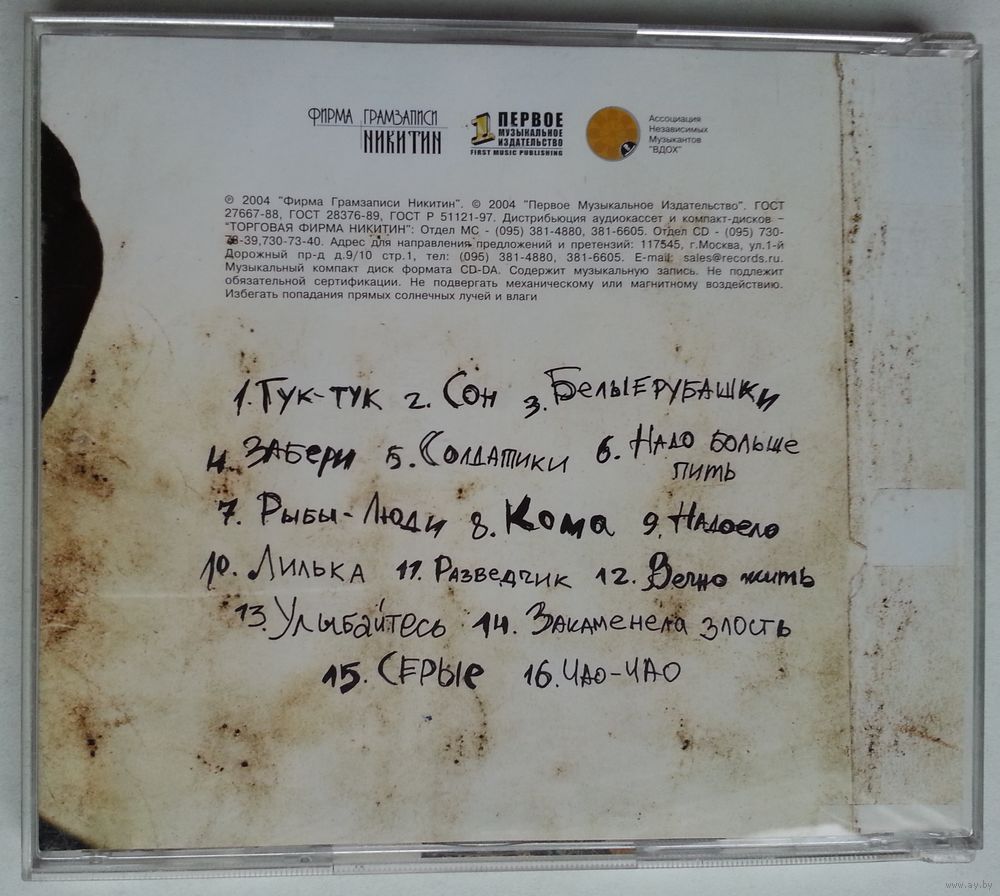 ФИРМА ГРАМЗАПИСИ
НИКИТИН
1 ПЕРВОЕ
МУЗЫКАЛЬНОЕ
ИЗДАТЕЛЬСТВО
FIRST MUSIC PUBLISHING
Ассоциация
Независимых
Музыкантов
"ВДОХ"
℗ 2004 "Фирма Грамзаписи Никитин". © 2004 "Первое Музыкальное Издательство". ГОСТ
27667-88, ГОСТ 28376-89, ГОСТ Р 51121-97. Дистрибьюция аудиокассет и компакт-дисков –
"ТОРГОВАЯ ФИРМА НИКИТИН": Отдел МС - (095) 381-4880, 381-6605. Отдел CD - (095) 730-
73-39,730-73-40. Адрес для направления предложений и претензий: 117545, г.Москва, ул.1-й
Дорожный пр-д д.9/10 стр.1, тел: (095) 381-4880, 381-6605. E-mail: sales@records.ru.
Музыкальный компакт диск формата CD-DA. Содержит музыкальную запись. Не подлежит
обязательной сертификации. Не подвергать механическому или магнитному воздействию.
Избегать попадания прямых солнечных лучей и влаги
1. Тук-тук 2. Сон 3. Белыерубашки
4. Забери 5. Солдатики 6. Надо больше
пить
7. Рыбы-Люди 8. Кома 9. Надоело
10. Лилька 11. Разведчик 12. Вечно жить
13. Улыбайтесь 14. Закаменела злость
15. Серые 16. Чао-чао
www.ay.by